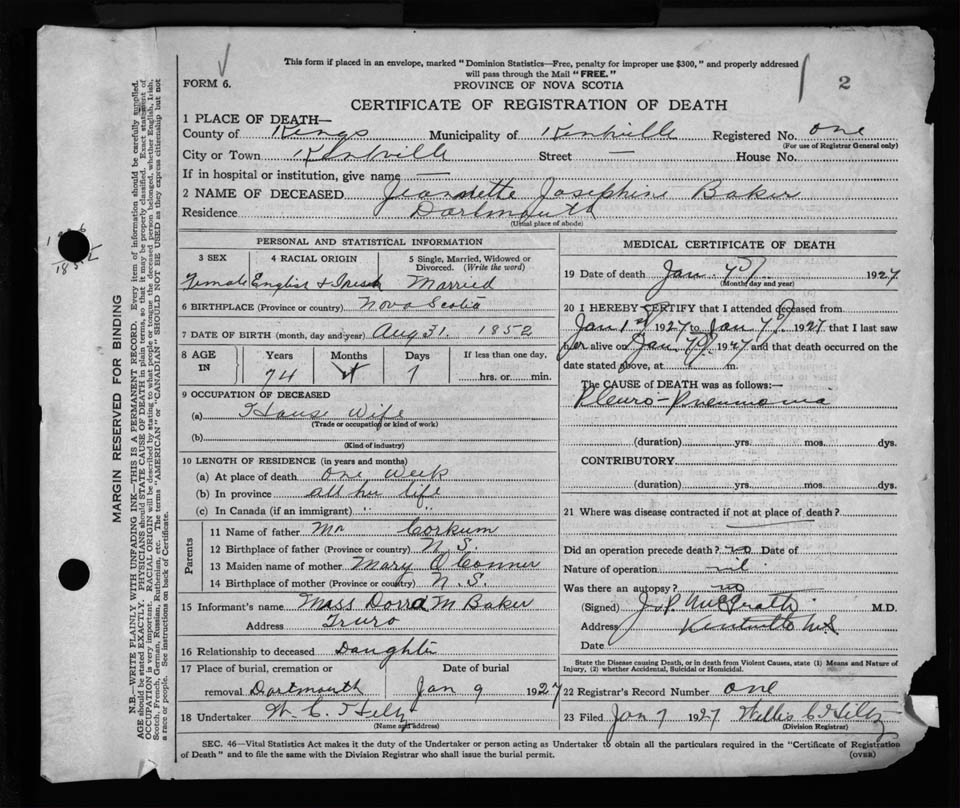 This form if placed in an envelope, marked "Dominion Statistics—Free, penalty for improper use $300," and properly addressed
will pass through the Mail "FREE."
FORM 6.
PROVINCE OF NOVA SCOTIA
2
CERTIFICATE OF REGISTRATION OF DEATH
1 PLACE OF DEATH—
County of Kings Municipality of Kentville Registered No. one
(For use of Registrar General only)
City or Town Kentville Street — House No.
If in hospital or institution, give name —
2 NAME OF DECEASED Jeannette Josephine Baker
Residence Dartmouth
(Usual place of abode)
PERSONAL AND STATISTICAL INFORMATION
3 SEX 4 RACIAL ORIGIN 5 Single, Married, Widowed or Divorced. (Write the word)
Female English & Irish Married
6 BIRTHPLACE (Province or country) Nova Scotia
7 DATE OF BIRTH (month, day and year) Aug 31. 1852
8 AGE IN Years Months Days If less than one day,
74 4 7 hrs. or min.
9 OCCUPATION OF DECEASED
(a) House Wife
(Trade or occupation or kind of work)
(b)
(Kind of industry)
10 LENGTH OF RESIDENCE (in years and months)
(a) At place of death one week
(b) In province all her life
(c) In Canada (if an immigrant) " "
Parents
11 Name of father Mr Corkum
12 Birthplace of father (Province or country) N.S.
13 Maiden name of mother Mary O'Conner
14 Birthplace of mother (Province or country) N.S.
15 Informant's name Miss Dorra M Baker
Address Truro
16 Relationship to deceased Daughter
17 Place of burial, cremation or Date of burial
removal Dartmouth Jan 9 1927
18 Undertaker W. C. Hiltz
(Name and address)
MEDICAL CERTIFICATE OF DEATH
19 Date of death Jan 7 1927
(Month, day and year)
20 I HEREBY CERTIFY that I attended deceased from
Jan 1st 1927 to Jan 7 1927 that I last saw
her alive on Jan 7 1927 and that death occurred on the
date stated above, at m.
The CAUSE OF DEATH was as follows:—
Pleuro-Pneumonia
(duration) yrs. mos. dys.
CONTRIBUTORY.
(duration) yrs. mos. dys.
21 Where was disease contracted if not at place of death?
Did an operation precede death? no Date of
Nature of operation nil
Was there an autopsy? no
(Signed) J. P. McGrath M.D.
Address Kentville N.S
Date
State the Disease causing Death, or in death from Violent Causes, state (1) Means and Nature of
Injury, (2) whether Accidental, Suicidal or Homicidal.
22 Registrar's Record Number one
23 Filed Jan 7 1927 Willis C Hiltz
(Division Registrar)
SEC. 46—Vital Statistics Act makes it the duty of the Undertaker or person acting as Undertaker to obtain all the particulars required in the "Certificate of Registration
of Death" and to file the same with the Division Registrar who shall issue the burial permit.
(OVER)
MARGIN RESERVED FOR BINDING
N.B.—WRITE PLAINLY WITH UNFADING INK—THIS IS A PERMANENT RECORD. Every item of information should be carefully supplied.
AGE should be stated EXACTLY. PHYSICIANS should STATE CAUSE OF DEATH in plain terms, so that it may be properly classified. Exact statement of
OCCUPATION is very important. RACIAL ORIGIN will be described by stating to what people or tongue the deceased person belonged, whether English, Irish,
Scotch, French, German, Russian, Ruthenian, etc. The terms "AMERICAN" or "CANADIAN" SHOULD NOT BE USED as they express citizenship but not
a race or people. See instructions on back of Certificate.
1852